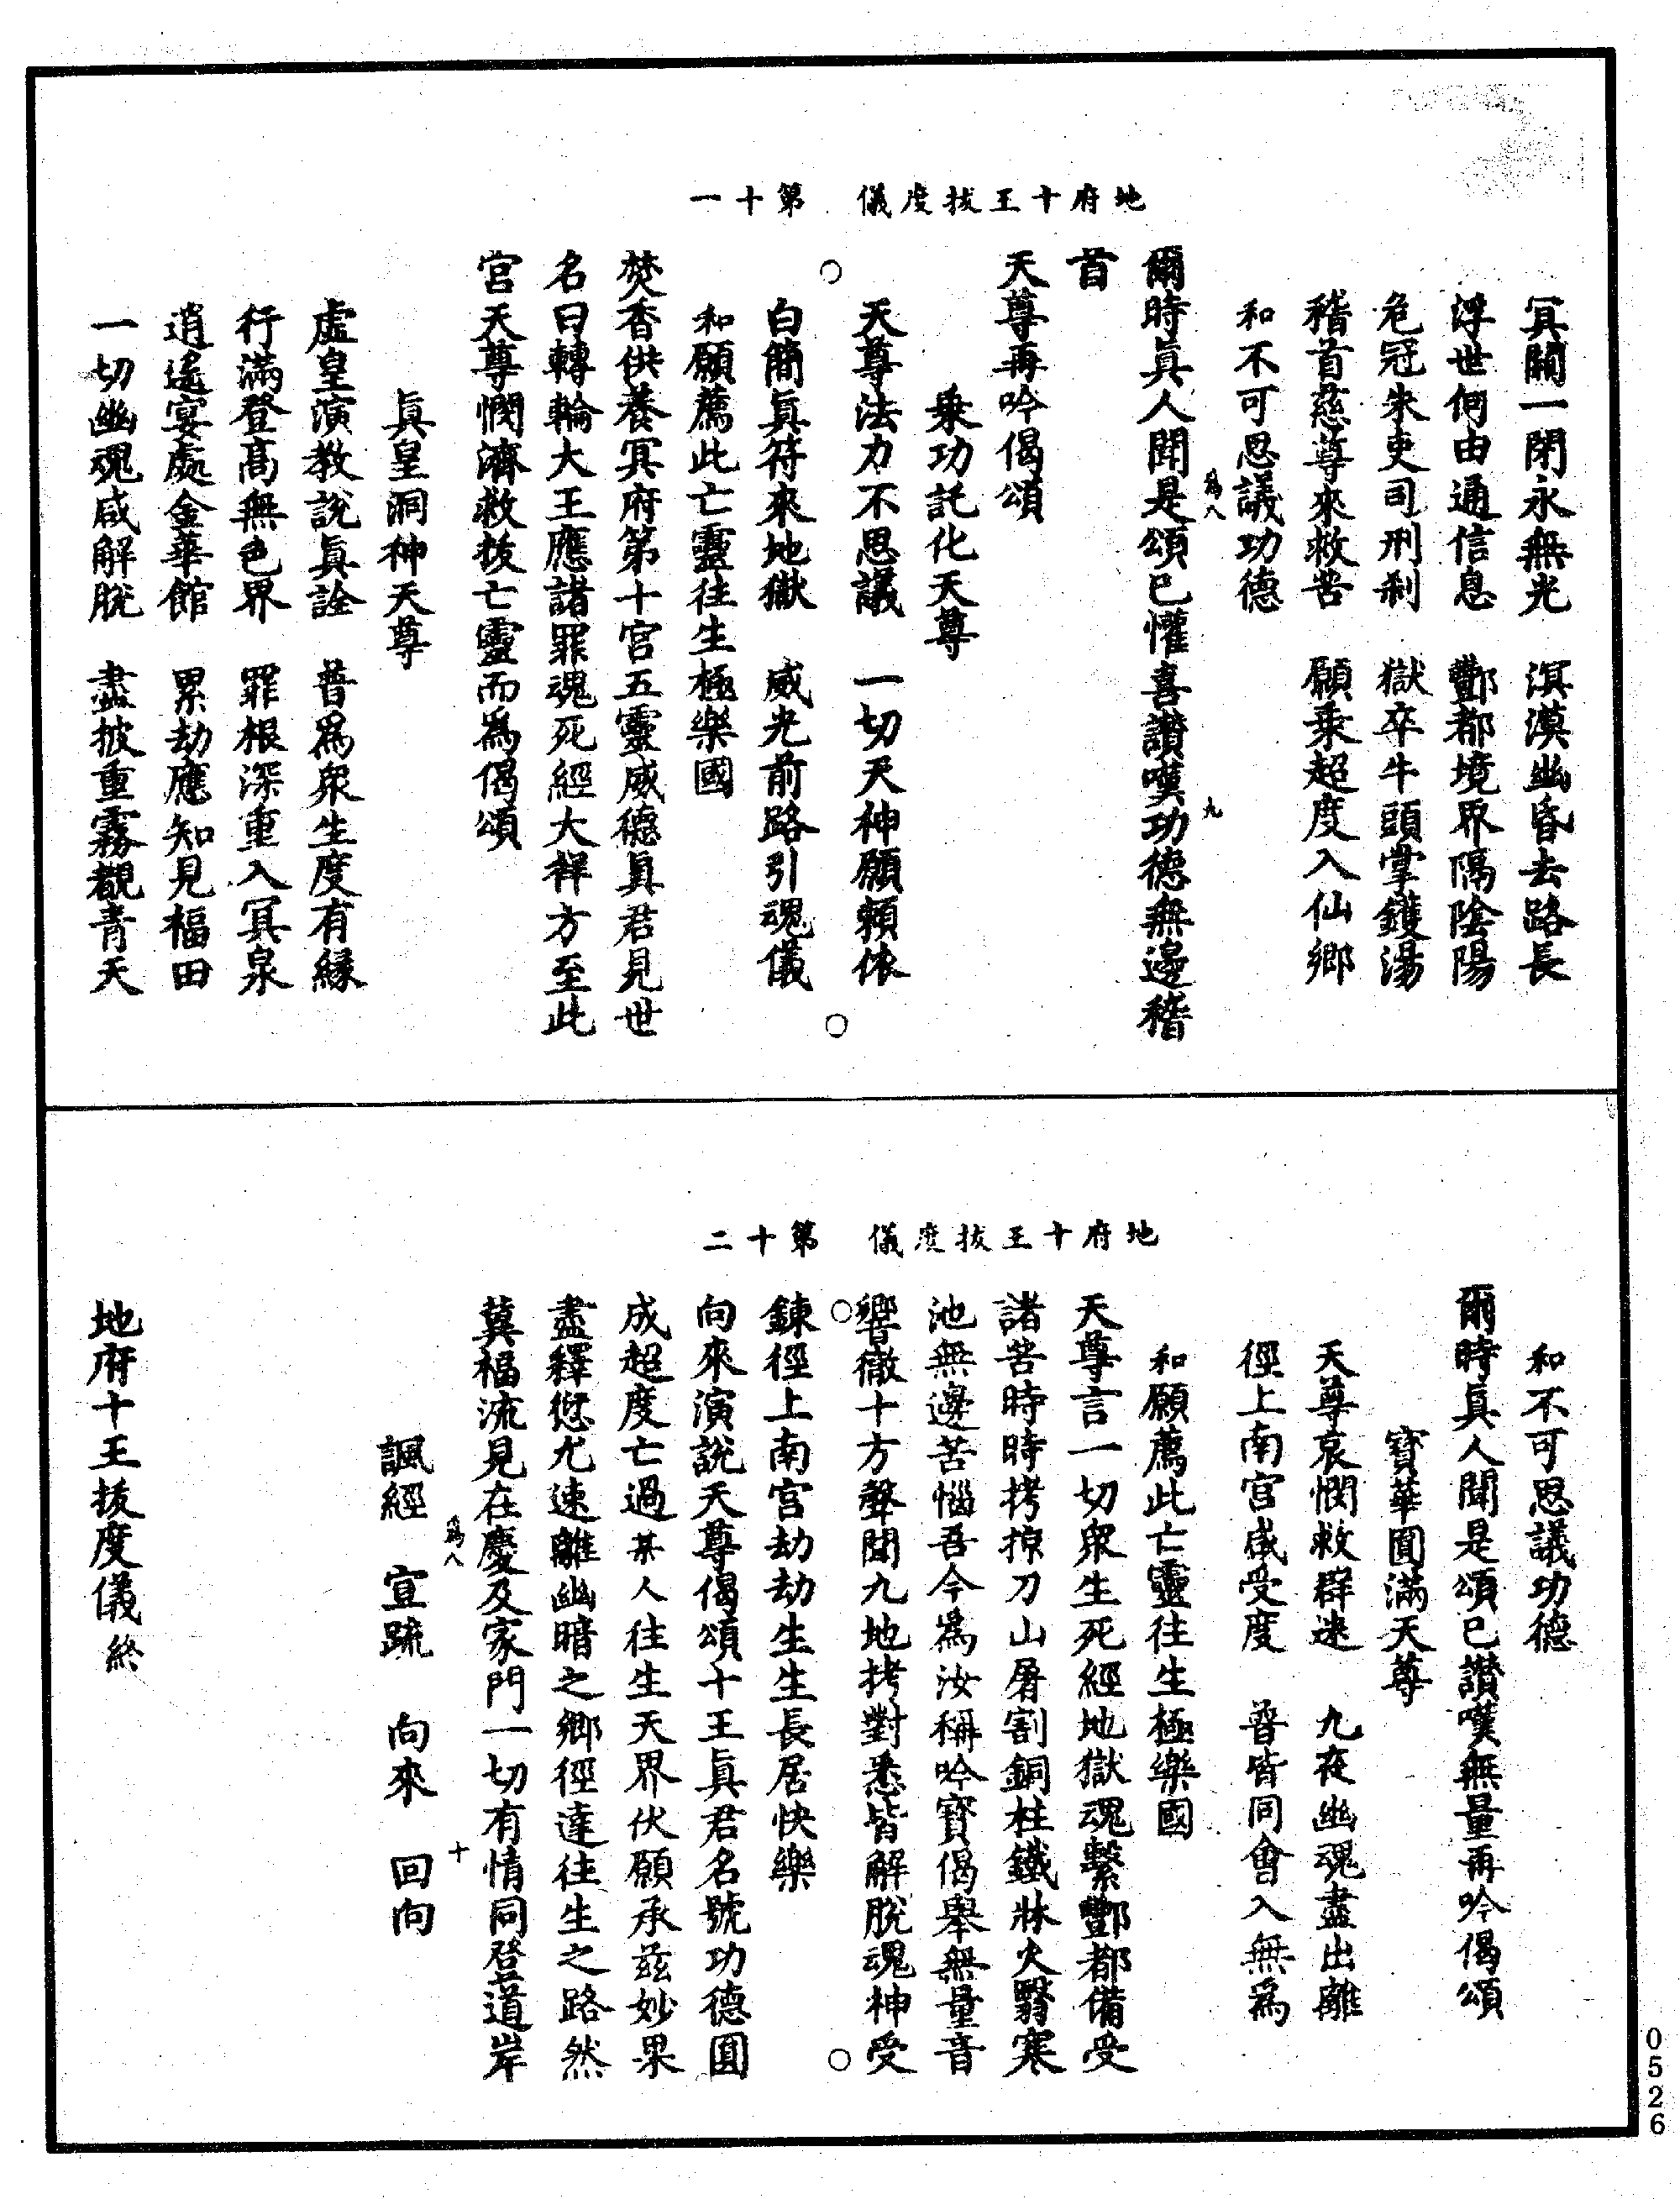 地府十王拔度儀　第十一
冥關一閉永無光　溟漠幽昏去路長
浮世何由通信息　酆都境界隔陰陽
危冠朱吏司刑剎　獄卒牛頭掌鑊湯
稽首慈尊來救苦　願乘超度入仙鄉
和不可思議功德
爲八
九
爾時眞人聞是頌已懽喜讃嘆功德無邊稽
首
天尊再吟偈頌
乗功託化天尊
天尊法力不思議　一切天神願頼依
白簡眞符來地獄　威光前路引魂儀
和願薦此亡靈往生極樂國
焚香供養冥府第十宮五靈威德眞君見世
名曰轉輪大王應諸罪魂死經大祥方至此
宮天尊憫濟救拔亡靈而爲偈頌
眞皇洞神天尊
虛皇演教說眞詮　普爲衆生度有緣
行滿登高無色界　罪根深重入冥泉
逍遙宴處金華館　累劫應知見福田
一切幽魂咸解脫　盡披重霧覩青天
地府十王拔度儀　第十二
和不可思議功德
爾時眞人聞是頌已讃嘆無量再吟偈頌
寳華圓滿天尊
天尊哀憫救群迷　九夜幽魂盡出離
徑上南宮咸受度　普皆同會入無爲
和願薦此亡靈往生極樂國
天尊言一切衆生死經地獄魂繫酆都備受
諸苦時時拷掠刀山屠割銅柱鐵牀火翳寒
池無邊苦惱吾今爲汝稱吟寳偈舉無量音
響徹十方聲聞九地拷對悉皆解脫魂神受
鍊徑上南宮劫劫生生長居快樂
向來演說天尊偈頌十王眞君名號功德圓
成超度亡過某人往生天界伏願承兹妙果
盡釋愆尤速離幽暗之鄉徑達往生之路然
冀福流見在慶及家門一切有情同登道岸
爲八
十
諷經　宣䟽　向來　回向
地府十王拔度儀終
0526